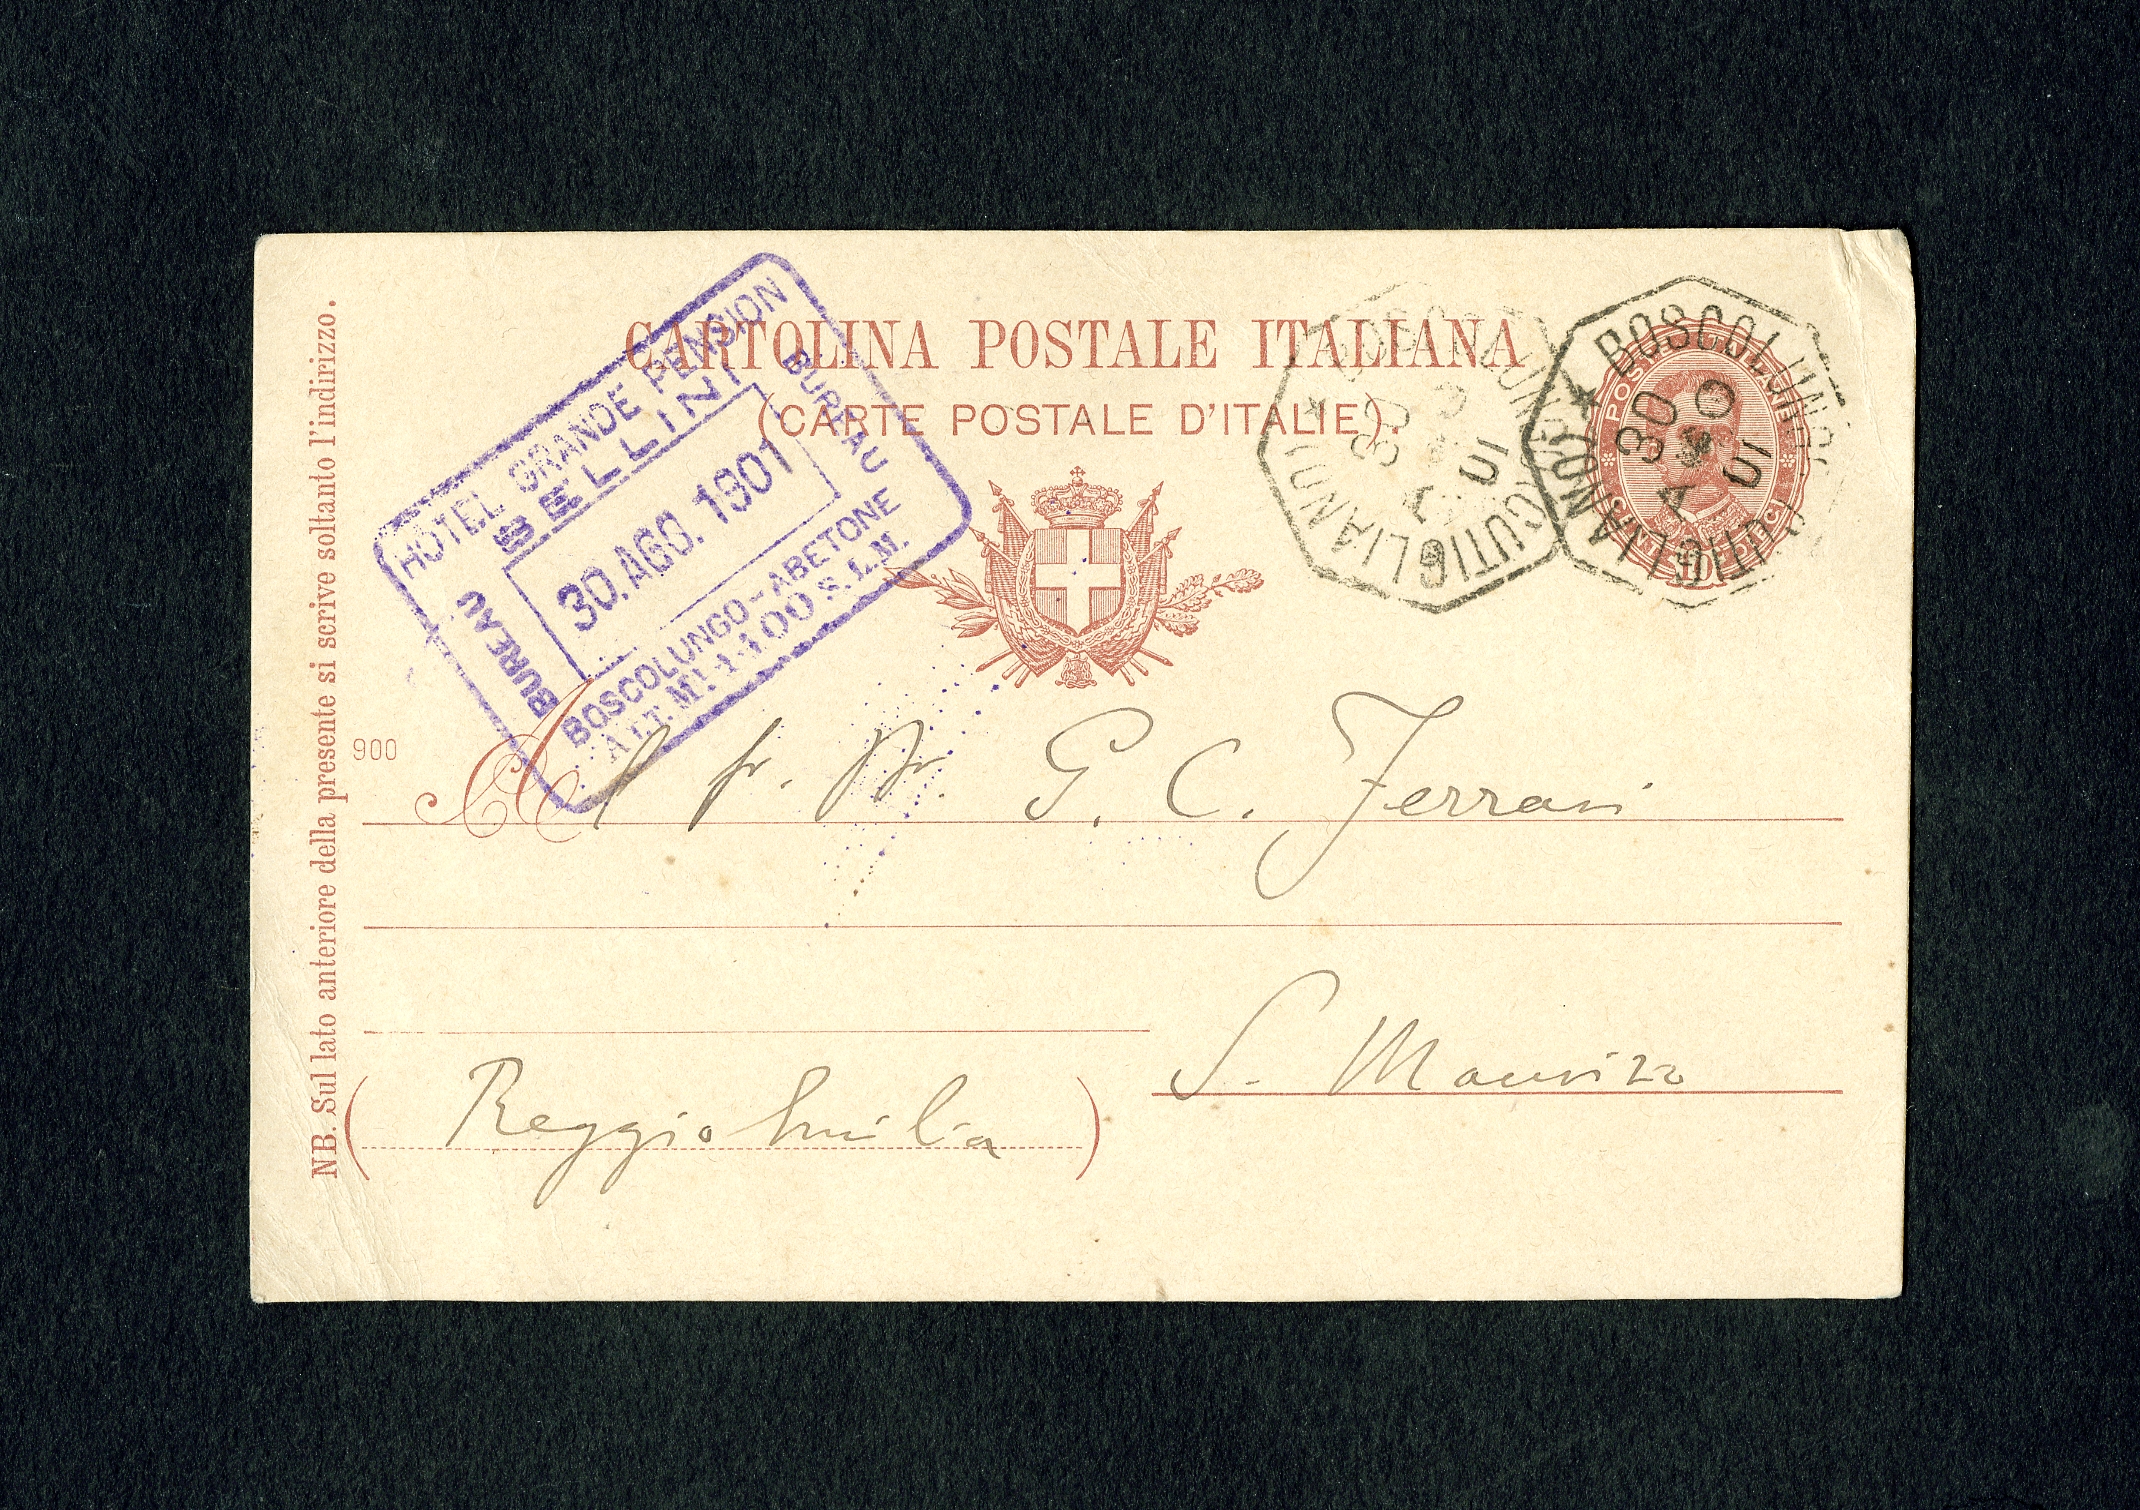 CARTOLINA POSTALE ITALIANA
(CARTE POSTALE D'ITALIE)
HOTEL GRANDE PENSION
BELLINI
BUREAU
30.AGO.1901
BUREAU
BOSCOLUNGO-ABETONE
ALT. M! 1400 S.L.M.
BOSCOLUNGO
(CUTIGLIANO)
30
AGO
01
BOSCOLUNGO
(CUTIGLIANO)
30
AGO
01
POSTE ITALIANE
CENTESIMI DIECI
10
NB. Sul lato anteriore della presente si scrive soltanto l'indirizzo.
900
Al Sr. Dr. G. C. Ferrari
S. Maurizio
(Reggio Emilia)